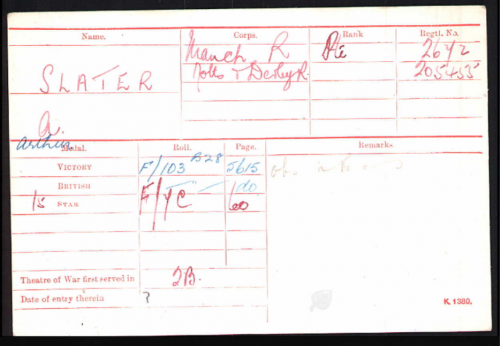 Name. Corps. Rank Regtl. No.
SLATER Manch R Pte 2642
Notts & Derby R. 205455
A.
Arthur
Medal. Roll. Page. Remarks.
VICTORY F/103 B28 5615
BRITISH do
15 STAR F/4C 60
Theatre of War first served in 2B.
Date of entry therein ?
K. 1380.